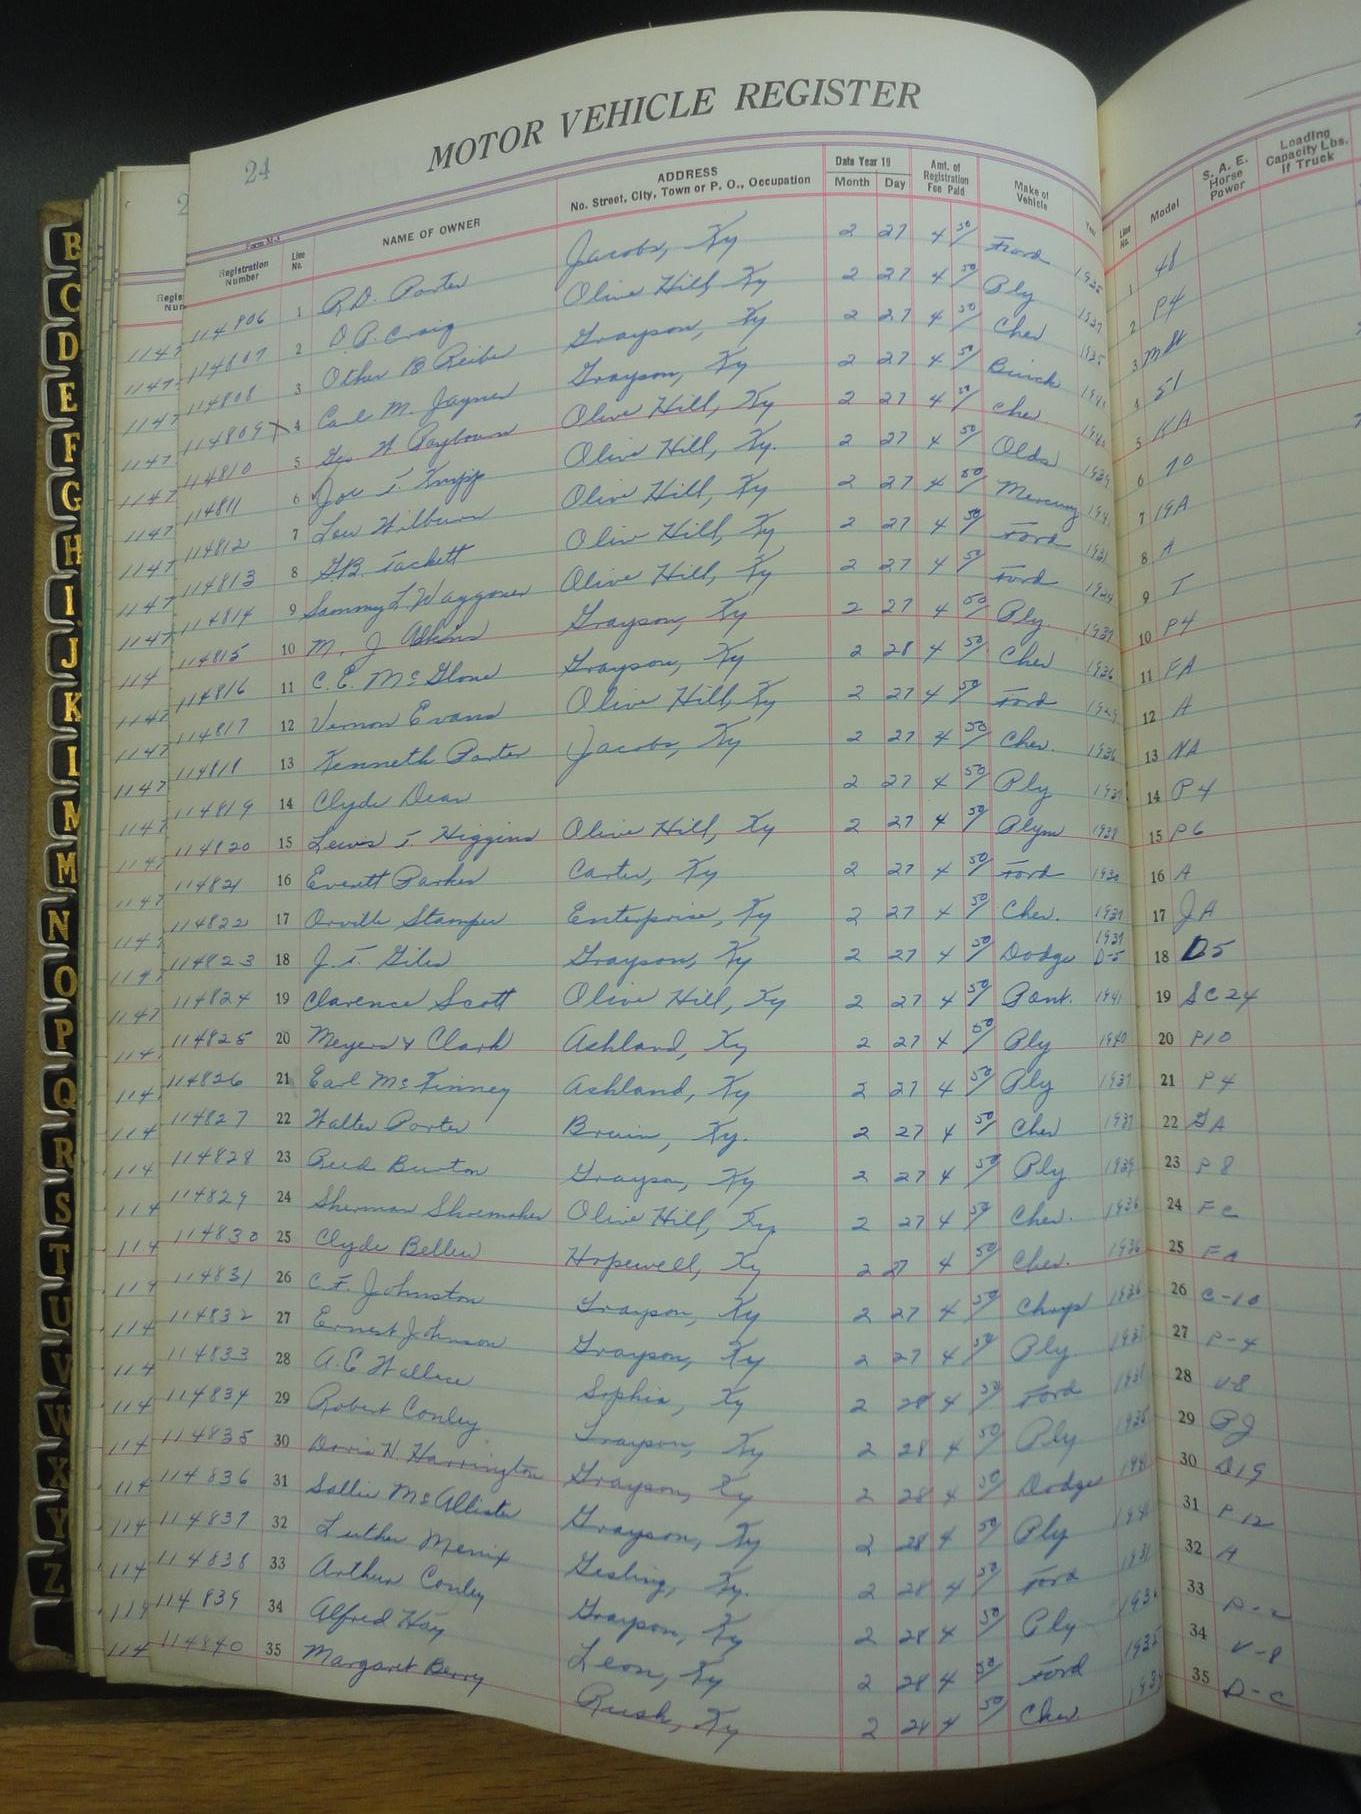 24
MOTOR VEHICLE REGISTER
Registration Number Line No. NAME OF OWNER ADDRESS No. Street, City, Town or P. O., Occupation Date Year 19 Month Day Amt. of Registration Fee Paid Make of Vehicle Year Line No. Model S. A. E. Horse Power Loading Capacity Lbs. If Truck
114806 1 R.D. Porter Jacobs, Ky 2 27 4 50 Ford 1935 1 48
114807 2 O.P. Craig Olive Hill, Ky 2 27 4 50 Ply 1937 2 P4
114808 3 Other B Reibe Grayson, Ky 2 27 4 50 Chev 1935 3
114809 4 Carl M. Jayne Grayson, Ky 2 27 4 50 Buick 4 51
114810 5 Geo W Rayburn Olive Hill, Ky 2 27 4 50 Chev. 5 KA
114811 6 Joe T. Knipp Olive Hill, Ky. 2 27 4 50 Olds 1939 6 70
114812 7 Lou Wilburn Olive Hill, Ky 2 27 4 50 Mercury 1941 7 19A
114813 8 G.B. Tackett Olive Hill, Ky 2 27 4 50 Ford 1931 8 A
114814 9 Sammy L Waggoner Olive Hill, Ky 2 27 4 50 Ford 9 T
114815 10 M. J Adkins Grayson, Ky 2 27 4 50 Ply. 1937 10 P4
114816 11 C.E. McGlone Grayson, Ky 2 28 4 50 Chev 1936 11 FA
114817 12 Vernon Evans Olive Hill, Ky 2 27 4 50 Ford 1929 12 A
114818 13 Kenneth Porter Jacobs, Ky 2 27 4 50 Chev. 1936 13 NA
114819 14 Clyde Dean 2 27 4 50 Ply 1937 14 P4
114820 15 Lewis T. Higgins Olive Hill, Ky 2 27 4 50 Plym 1938 15 P6
114821 16 Everett Parker Carter, Ky 2 27 4 50 Ford 1930 16 A
114822 17 Orville Stamper Enterprise, Ky 2 27 4 50 Chev. 1939 17 JA
114823 18 J.T. Giles Grayson, Ky 2 27 4 50 Dodge 1937 D-5 18 D5
114824 19 Clarence Scott Olive Hill, Ky 2 27 4 50 Pont. 1941 19 SC 24
114825 20 Meyers & Clark Ashland, Ky 2 27 4 50 Ply 1940 20 P10
114826 21 Earl McKinney Ashland, Ky 2 27 4 50 Ply 1937 21 P4
114827 22 Walter Porter Bruin, Ky. 2 27 4 50 Chev 1937 22 GA
114828 23 Burton Grayson, Ky 2 27 4 50 Ply 1939 23 P8
114829 24 Sherman Shoemaker Olive Hill, Ky. 2 27 4 50 Chev. 1936 24 FC
114830 25 Clyde Bellew Hopewell, Ky 2 27 4 50 Chev. 1936 25 FA
114831 26 C.F. Johnston Grayson, Ky 2 27 4 50 Chrys 1936 26 C-10
114832 27 Ernest Johnson Grayson, Ky 2 27 4 50 Ply. 1937 27 P-4
114833 28 A.C Wallace Sophia, Ky 2 28 4 50 Ford 28 V-8
114834 29 Robert Conley Grayson, Ky 2 28 4 50 Ply 1935 29 PJ
114835 30 Doris N. Harrington Grayson, Ky 2 28 4 50 Dodge 1941 30 D19
114836 31 Sallie McAllister Grayson, Ky 2 28 4 50 Ply 31 P12
114837 32 Luther Menix Gesling, Ky. 2 28 4 50 Ford 1931 32 A
114838 33 Arthur Conley Grayson, Ky 2 28 4 50 Ply 33
114839 34 Alfred Hay Leon, Ky 2 28 4 50 Ford 1935 34 V-8
114840 35 Margaret Berry Rush, Ky 2 28 4 50 Chev. 35 D-C
B
C
D
E
F
G
H
I
J
K
L
M
M
N
O
P
Q
R
S
T
U
V
W
X
Y
Z